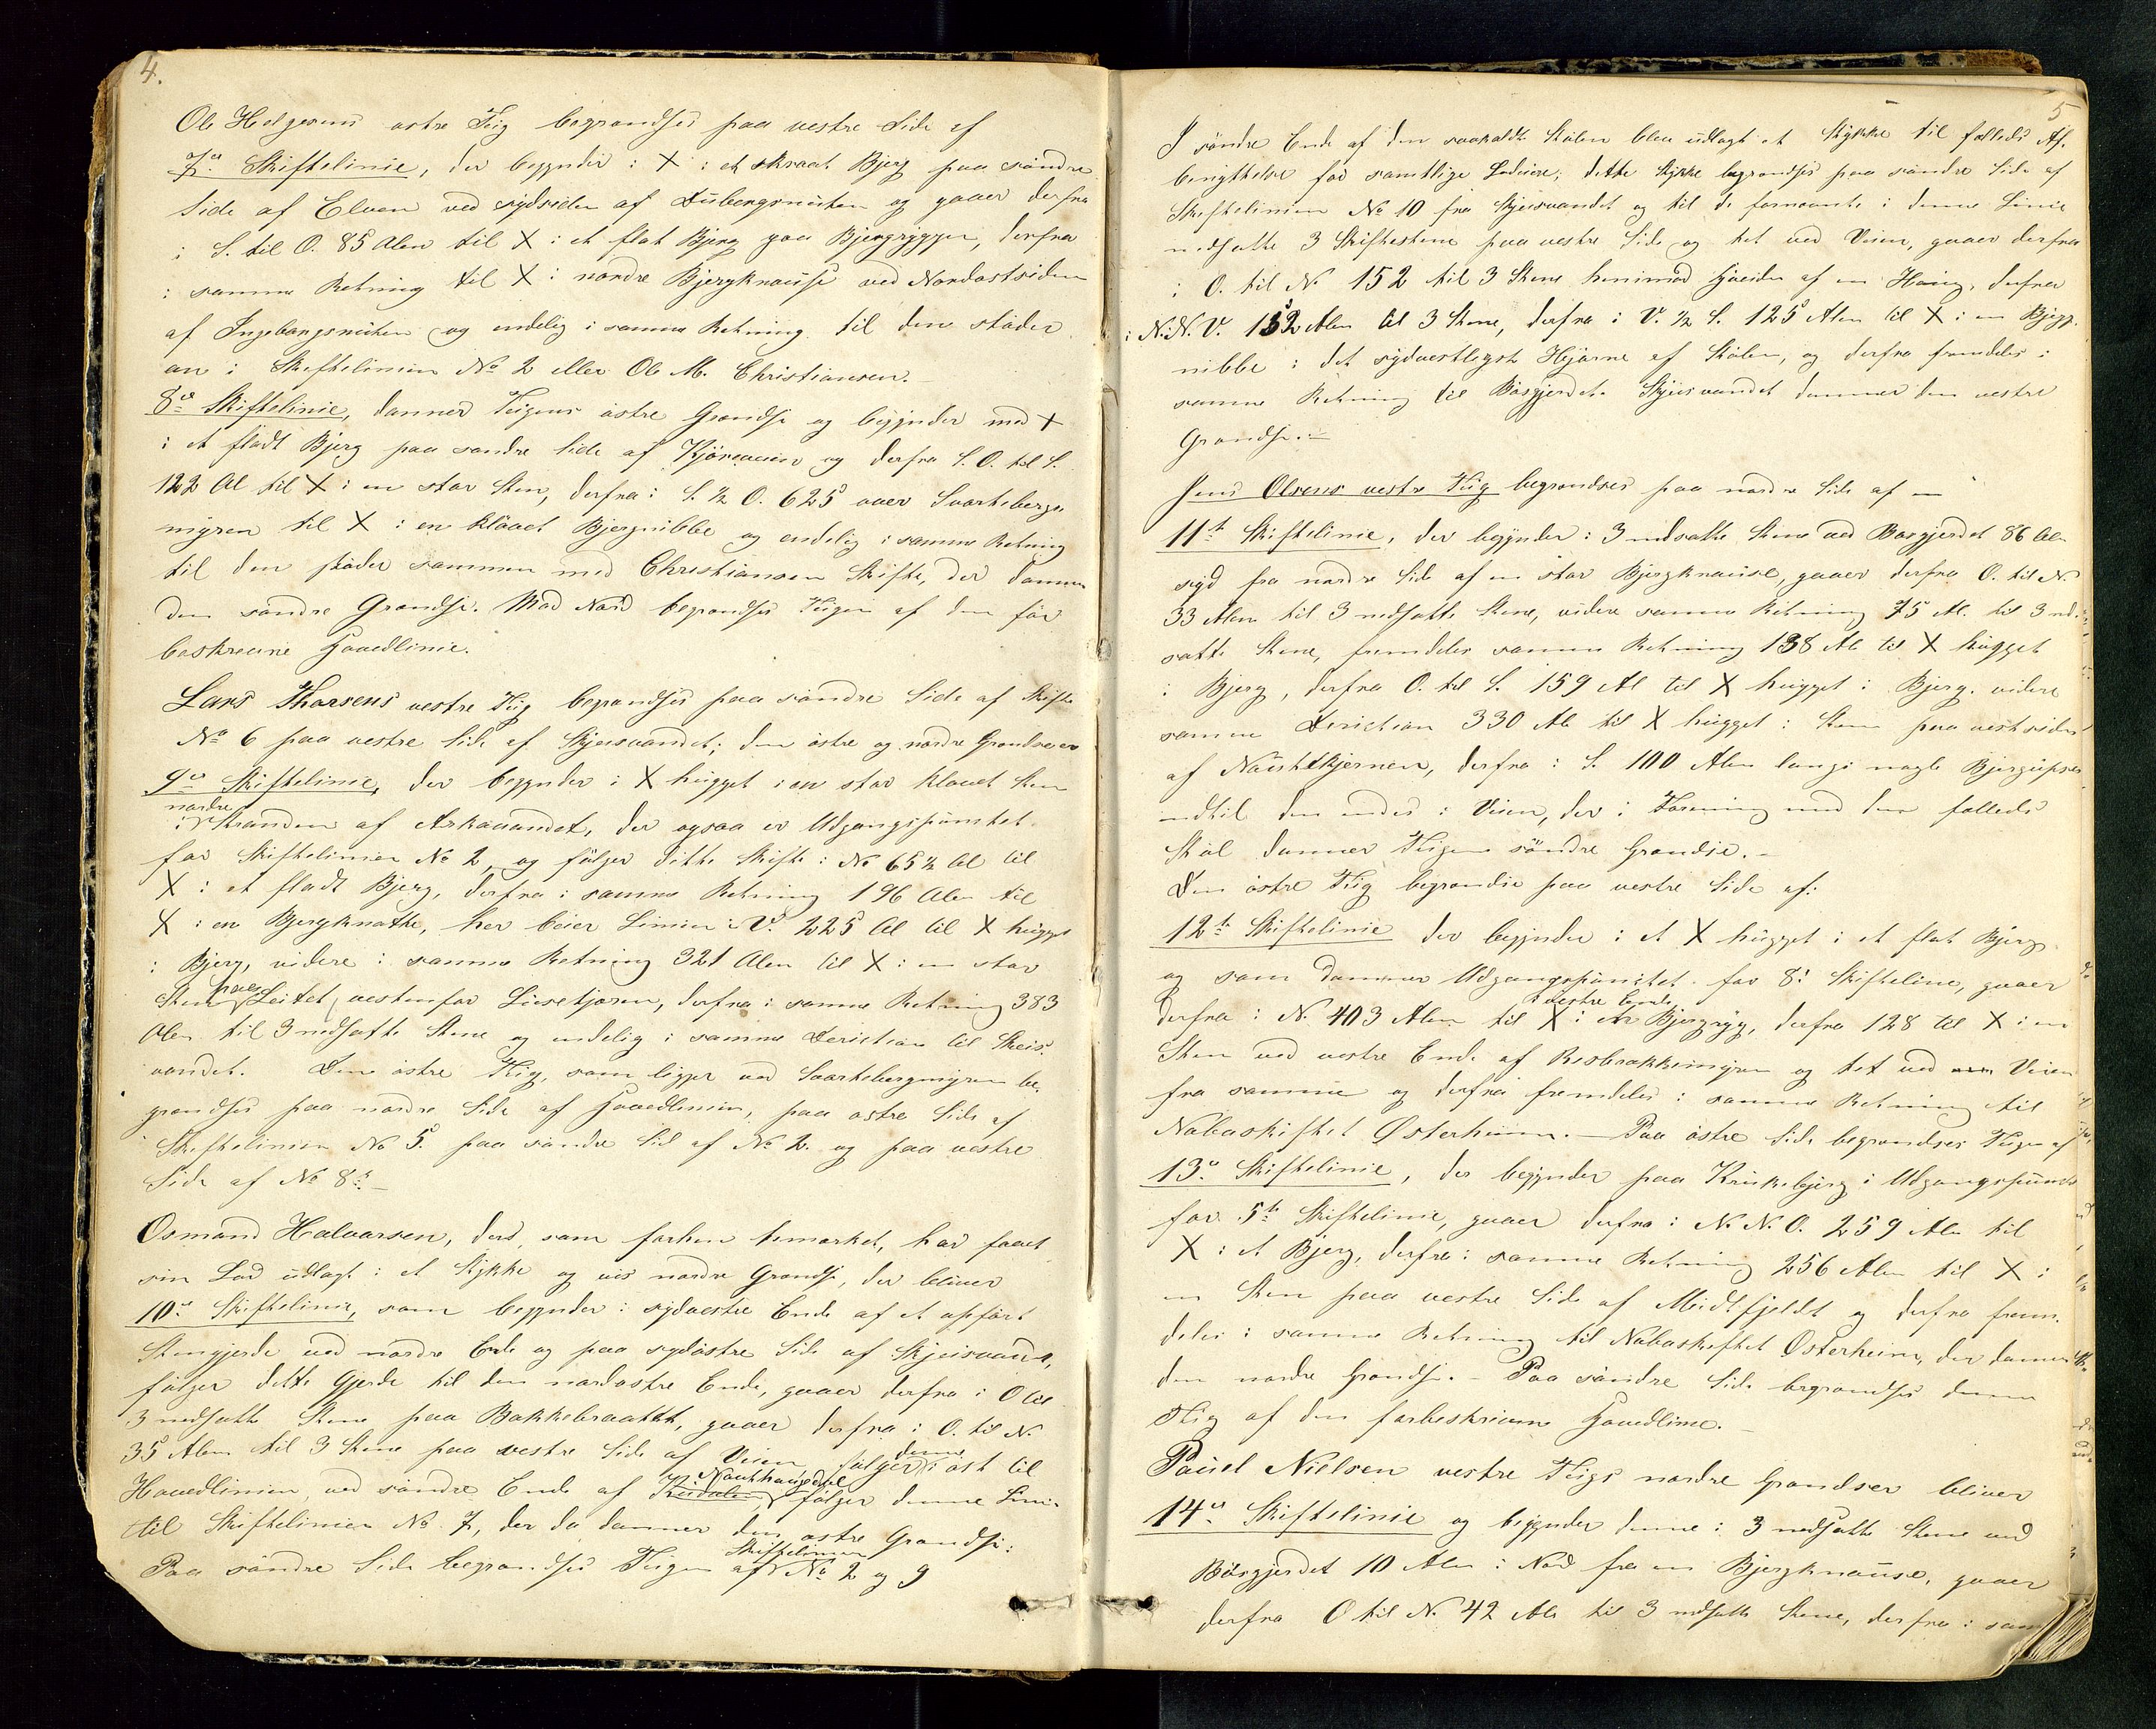 4.
Ole Helgesens østre Teig begrændses paa vestre Side af
7de Skiftelinie, der begynder i X i et skraat Bjerg paa søndre
Side af Elven ved sydsiden af Dübergsnuten og gaaer derfra
i S. til O. 85 Alen til X i et flat Bjerg paa Bjergryggen, derfra
i samme Retning til X i nordre Bjergknause ved Nordostsiden
af Ingebergsnuten og endelig i samme Retning til den støder
an i Skiftelinien No 2 eller Ole M. Christiansen.
8de Skiftelinie, danner Teigens østre Grændse og begynder med X
i et fladt Bjerg paa søndre side af Kjøreveien og derfra S. O. til S.
122 Al til X i en stor Sten, derfra i S. ½ O. 625 over Svartebergs
myren til X i en kløvet Bjergnibbe og endelig i samme Retning
til den støder sammen med Christiansen Skifte, der danner
den søndre Grændse. Mod Nord begrændses Teigen af den før
beskrevne Hovedlinie.
Lars Thorsens vestre Teig begrændses paa søndre Side af Skifte
No 6 paa vestre Side af Skjeisvandet; den østre og nordre Grændse er
9de Skiftelinie, der begynder i X hugget i en stor kløvet Sten
i nordre Stranden af Arkavandet, der ogsaa er Udgangspunktet
for Skiftelinien No 2, og følger dette Skifte i No 65½ Al til
X i et fladt Bjerg, derfra i samme Retning 196 Alen til
X i en Bjergknatte, her bøier Linien i V. 225 Al til X hugget
i Bjerg, videre i samme Retning 321 Alen til X i en stor
Sten paa Leitet vestenfor Liusetjøren, derfra i samme Retning 383
Alen til 3 nedsatte Stene og endelig i samme Deriction til Skeis-
vandet. Den østre Teig, som ligger ved Svartebergmyren be-
grændses paa nordre Side af Hovedlinien, paa østre Side af
Skiftelinien No 5. paa søndre Sid af No 2. og paa vestre
Side af No 8de
Osmund Halvorsen, der, som forhen bemærket, har faaet
sin Lod udlagt i et Stykke og vis nordre Grændse, der bliver
10de Skiftelinie, som begynder i sydvestre Ende af et opført
Stengjerde ved nordre Ende og paa sydøstre Side af Skjeisvand,
følger dette Gjerde til den nordøstre Ende, gaaer derfra i O til
3 nedsatte Stene paa Bakkebraattet, gaaer derfra i O. til N.
35 Alen til 3 Stene paa vestre Side af Veien følger denne i øst til
Hovedlinien, ved søndre Ende af Nauthaugedal følger denne Linie
til Skiftelinien No 7, der da danner den østre Grændse:
Paa søndre Side begrændses Teigen af Skiftelinien No 2 og 9
5
I søndre Ende af den saakaldte Stølen blev udlagt et Stykke til fælleds Af-
benyttelse for samtlige Lodeiere; dette Stykke begrændses paa søndre Side af
Skiftelinien No 10 fra Skjeisvandet og til de fornævnte i denne Linie
nedsatte 3 Skiftestene paa vestre Side og tet ved Veien, gaaer derfra
i O. til N 152 til 3 Stene henimod Høiden af en Haug, derfra
i N.N.V. 152 Alen til 3 Stene, derfra i V. ½ S. 125 Alen til X i en Bjerg-
nibbe i det sydvestligste Hjørne af Stølen, og derfra fremdeles i
samme Retning til Bøsgjerdet. Skjeisvandet danner den vestre
Grændse.
Jens Olsens vestre Teig begrændses paa nordre Side af en
11te Skiftelinie, der begynder i 3 nedsatte Stene ved Bøsgjerdet 86 Alen
syd fra nordre Side af en stor Bjergknause, gaaer derfra O. til N.
33 Alen til 3 nedsatte Stene, videre samme Retning 75 Al. til 3 ned-
satte Stene, fremdeles samme Retning 138 Al. til X hugget
i Bjerg, derfra O. til S. 159 Al til X hugget i Bjerg. videre
samme Deriction 330 Al til X hugget i Sten paa vestsiden
af Naustkjernen, derfra i S. 100 Alen langs nogle Bjergüpser
indtil den ender i Veien, der i Forening med den fælleds
Støl danner Teigens søndre Grændse.
Den østre Teig begrændse paa vestre Side af:
12te Skiftelinie der begynder i et X hugget i et flat Bjerg
og som danner Udgangspunktet for 8de Skifteline, gaaer
derfra i N. 403 Alen til X i vestre Ende Bjergryg, derfra 128 til X i en
Sten ved vestre Ende af Risbrakkemyren og tet ved Veien
fra samme og derfra fremdeles i samme Retning til
Naboskiftet Østerheim. — Paa østre Side begrændses Teigen af
13de Skiftelinie, der begynder paa Krukebjerg i Udgangspunct
for 5te Skiftelinie, gaaer derfra i N.N.O. 259 Alen til
X i et Bjerg, derfra i samme Retning 256 Alen til X i
en Sten paa vestre Side af Midtfjeldt og derfra frem-
deles i samme Retning til Naboskiftet Østerheim, der danner
den nordre Grændse. — Paa søndre Side begrændses denne
Teig af den forbeskrivne Hovedlinie.
Pauel Nielsen vestre Teigs nordre Grændser bliver
14de Skiftelinie og begynder denne i 3 nedsatte Stene ved
Bøsgjerdet 10 Alen i Nord fra en Bjergknause, gaaer
derfra O til N. 42 Alen til 3 nedsatte Stene, derfra i sam